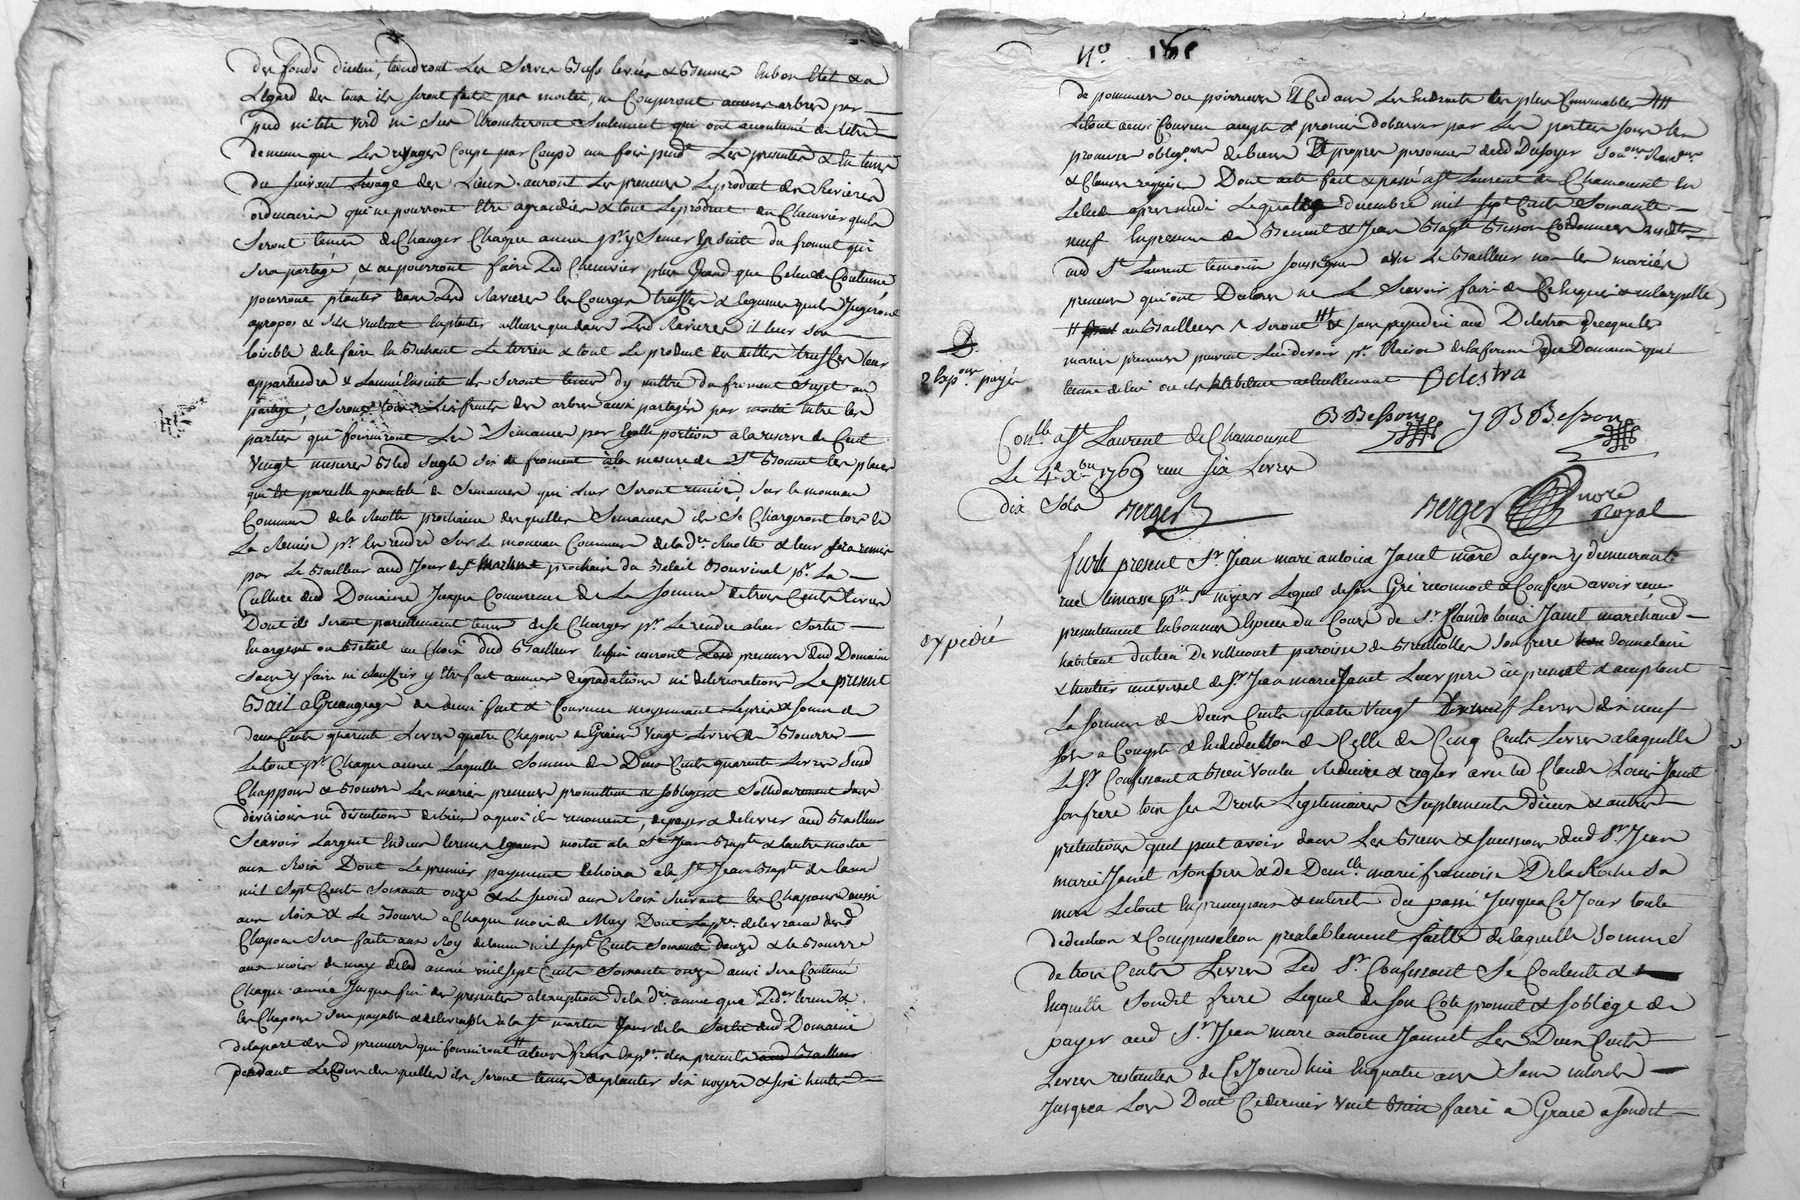 des fonds d'icelui, tiendront les serves biefs levées & beauxes en bon etat & a
L'égard des tous ils seront fait par moitié, ne Couperont aucuns arbres par
pied ni tete verd ni sec Ebrancheront seulement qui ont acoutumé de l'être
de meme que les Coupe par Coupe une fois pendt les presentes & en tems
du suivant Lusage des Lieux. auront les preneurs Le produit des Ravieres
ordinaires qui ne pourront être agrandies & tout Le produit du Chenevier qu'ils
Seront tenus de Changer Chaque année pr. y Semer En suite du froment qui
sera partagé, & ne pourront faire led Chenevier plus Grand que Celui de Coutume
pourront planter dans lesd Ravieres les Courges truffes & legumes qu'ils Jugeront
apropos & s'ils veulent en planter ailleurs que dans lesd Ravieres il leur sera
loisible de le faire En bechant Le terrein & tout Le produit des dittes truffes leur
appartiendra & Lannée Ensuite ils seront tenus d'y mettre du froment Sujet au
partage, seront tous les fruits des arbres aussi partagés par moitié entre les
parties, qui fourniront Les Semances par Egalle portion a la reserve de Cent
Vingt mesures bled segle six de froment à la mesure de St Bonnet les places
qui est pareille quantité de Semances qui leur seront remise, Sur le monceau
Commun de la Recolte prochaine desquelles Semances ils se Chargeront lors de
La Remise pr. les rendre Sur Le monceau Commun de lad. Recolte & leur sera remis
par Le Bailleur aud Jour de St Martin prochain du Betail Bouvinal pr. La
Culture dud Domaine Jusqua Concurrence de La Somme de trois Cents Livres
Dont ils seront pareillement tenus de se Charger pr. Le rendre aleur Sortie
En argent ou Betail au Choix dud Bailleur Enfin useront lesd preneurs dud Domaine
sans y faire ni souffrir y être fait aucunes degradations ni deteriorations Le present
Bail a Grangeage de ainsi fait & Convenu moyennant Le prix & somme de
deux Cents quarante Livres quatre Chapons Gras Vingt Livres de Beurre
Le tout pr. Chaque année Laquelle Somme de Deux Cents quarante Livres dud
Chappons & Beurre Les mariés preneurs promettent & sobligent Sollidairement Sans
division ni discution de biens a quoi ils renoncent, de payer & delivrer aud Bailleur
Scavoir Largent En deux termes Egaux moitié a la St Jean Bapte & lautre moitié
aux Rois Dont Le premier payement Echoira a la St Jean Bapte de lannée
mil Sept Cents Soixante onze & Le second aux Rois suivant les Chapons aussi
aux Rois & Le Beurre a Chaque mois de May Dont La pre. delivrance desd
Chapons Sera faite aux Roy de lannée mil sept Cents Soixante douze & le Beurre
aux mois de may de lad année mil sept Cents Soixante onze ainsi sera Continué
Chaque année Jusqua fin des presentes a lexception de la dre année que Led er terme &
les Chapons sera payable & delivrable a la St martin Jour de la Sortie dud Domaine
de la part desd preneurs qui fourniront a leurs frais Exp. des presentes aud Bailleur
pendant Le Cours desquelles ils seront tenus de planter six noyers & six Entes
No.
de pommiers ou poiriers Et Ce dans Les Endroits les plus Convenables
Le tout ainsi Convenu accepté & promis d'observer par les parties sous les
promesses obligons. de biens Et propres personnes
& Clauses requises Dont acte fait & passé a St Laurent de Chamousset En
Letude apres midi Le quatre decembre mil sept Cents Soixante
neuf En presence de Benoit & Jean Bapte Besson Cordonniers residts
aud St Laurent temoins soussignés avec Le Bailleur non les mariés
preneurs qui ont Declaré ne Le Scavoir faire de Ce Enquis & interpellés
au Bailleur seront & sans prejudice aud Delestra de ce que les
mariés preneurs peuvent Lui devoir pr. Raison de la ferme du Domaine qu'il
tenne de lui ou qu'ils habitent actuellement Delestra
2 Exp. payée
B Besson J B Besson
Conlle a St Laurent de Chamousset
Le 4e Xbre 1769 recu Six Livres
Dix Sols Berger
Berger nore Royal
fut present Sr. Jean marc antoine Janet mard a lyon y demeurant
rue limasse psse St nizier Lequel de son Gré reconnoit & Confesse avoir recu
expédié
presentement En bonnes Especes du Cours de Sr. Claude Louis Janet marchand
habitant du lieu De villecourt paroisse de Brullioles son frere donnataire
& heritier universel de Sr Jean marie Janet Leur pere ici present & acceptant
La somme de deux Cents quatre Vingt Livres dix neuf
sols a Compte & En deduction de Celle de Cinq Cents Livres a laquelle
Le Sr. Confessant a bien voulu Reduire & regler avec led Claude Louis Janet
son frere tous ses Droits Legitimaires Supplements d'iceux & autres
pretentions quil peut avoir dans Les Biens & succession dud Sr. Jean
marie Janet son pere & de Demlle. marie francoise De la Roche Sa
mere Le tout En principaux & interets du passé Jusqua Ce Jour toute
deduction & Compensation prealablement faitte de laquelle Somme
de trois Cents Livres Led Sr. Confessant se Contente &
En quitte Sondit frere Lequel de son Coté promet & soblige de
payer aud Sr. Jean marc antoine Jannet Les Deux Cents
Livres restantes de Ce Jourdhui En quatre ans Sans interets
Jusqua Lors Dont Ce dernier veut bien faire a Grace a sondit